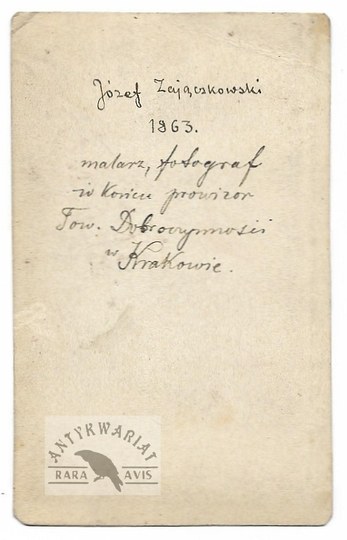 Józef Zajączkowski
1863.
malarz, fotograf
w końcu prowizor
Tow. Dobroczynności
w Krakowie.
ANTYKWARIAT
RARA AVIS